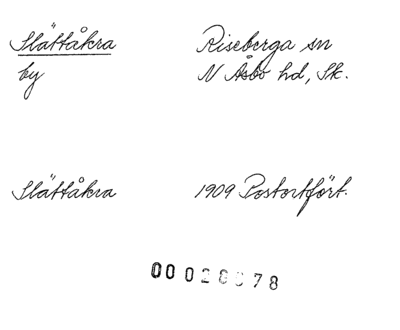 Slättåkra Riseberga sn
by N Åsbo hd, Sk.
Slättåkra 1909 Postortfört.